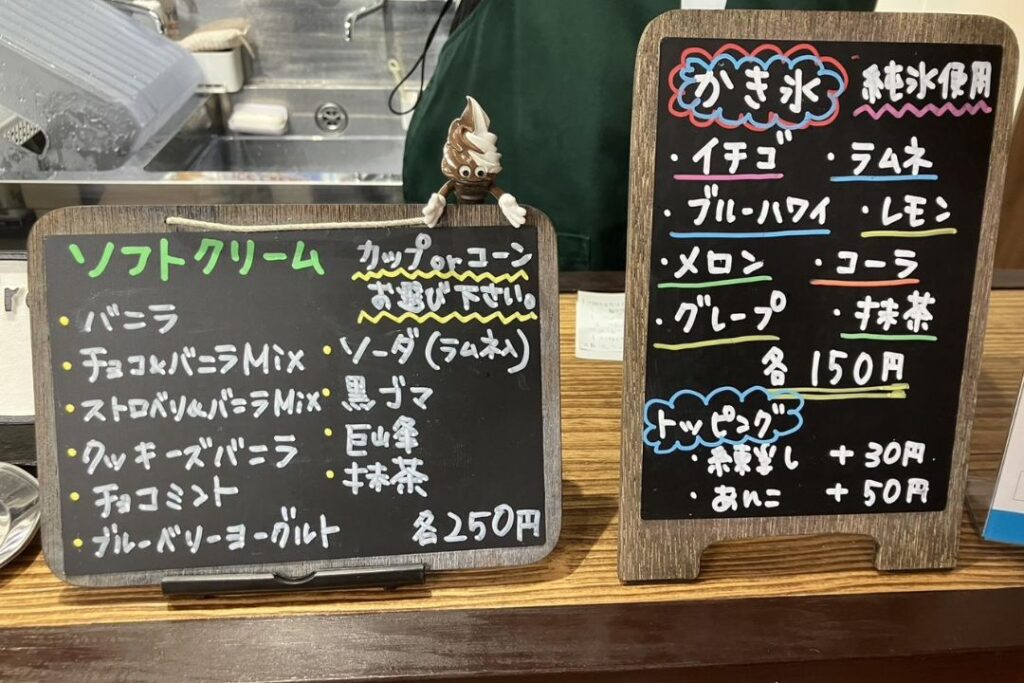 ソフトクリーム
カップorコーン
お選び下さい。
・バニラ
・チョコ&バニラMix
・ストロベリ&バニラMix
・クッキーズバニラ
・チョコミント
・ブルーベリーヨーグルト
・ソーダ(ラムネ入)
・黒ゴマ
・巨峰
・抹茶
各250円
かき氷 純氷使用
・イチゴ ・ラムネ
・ブルーハワイ ・レモン
・メロン ・コーラ
・グレープ ・抹茶
各 150円
トッピング
・練乳 +30円
・あんこ +50円